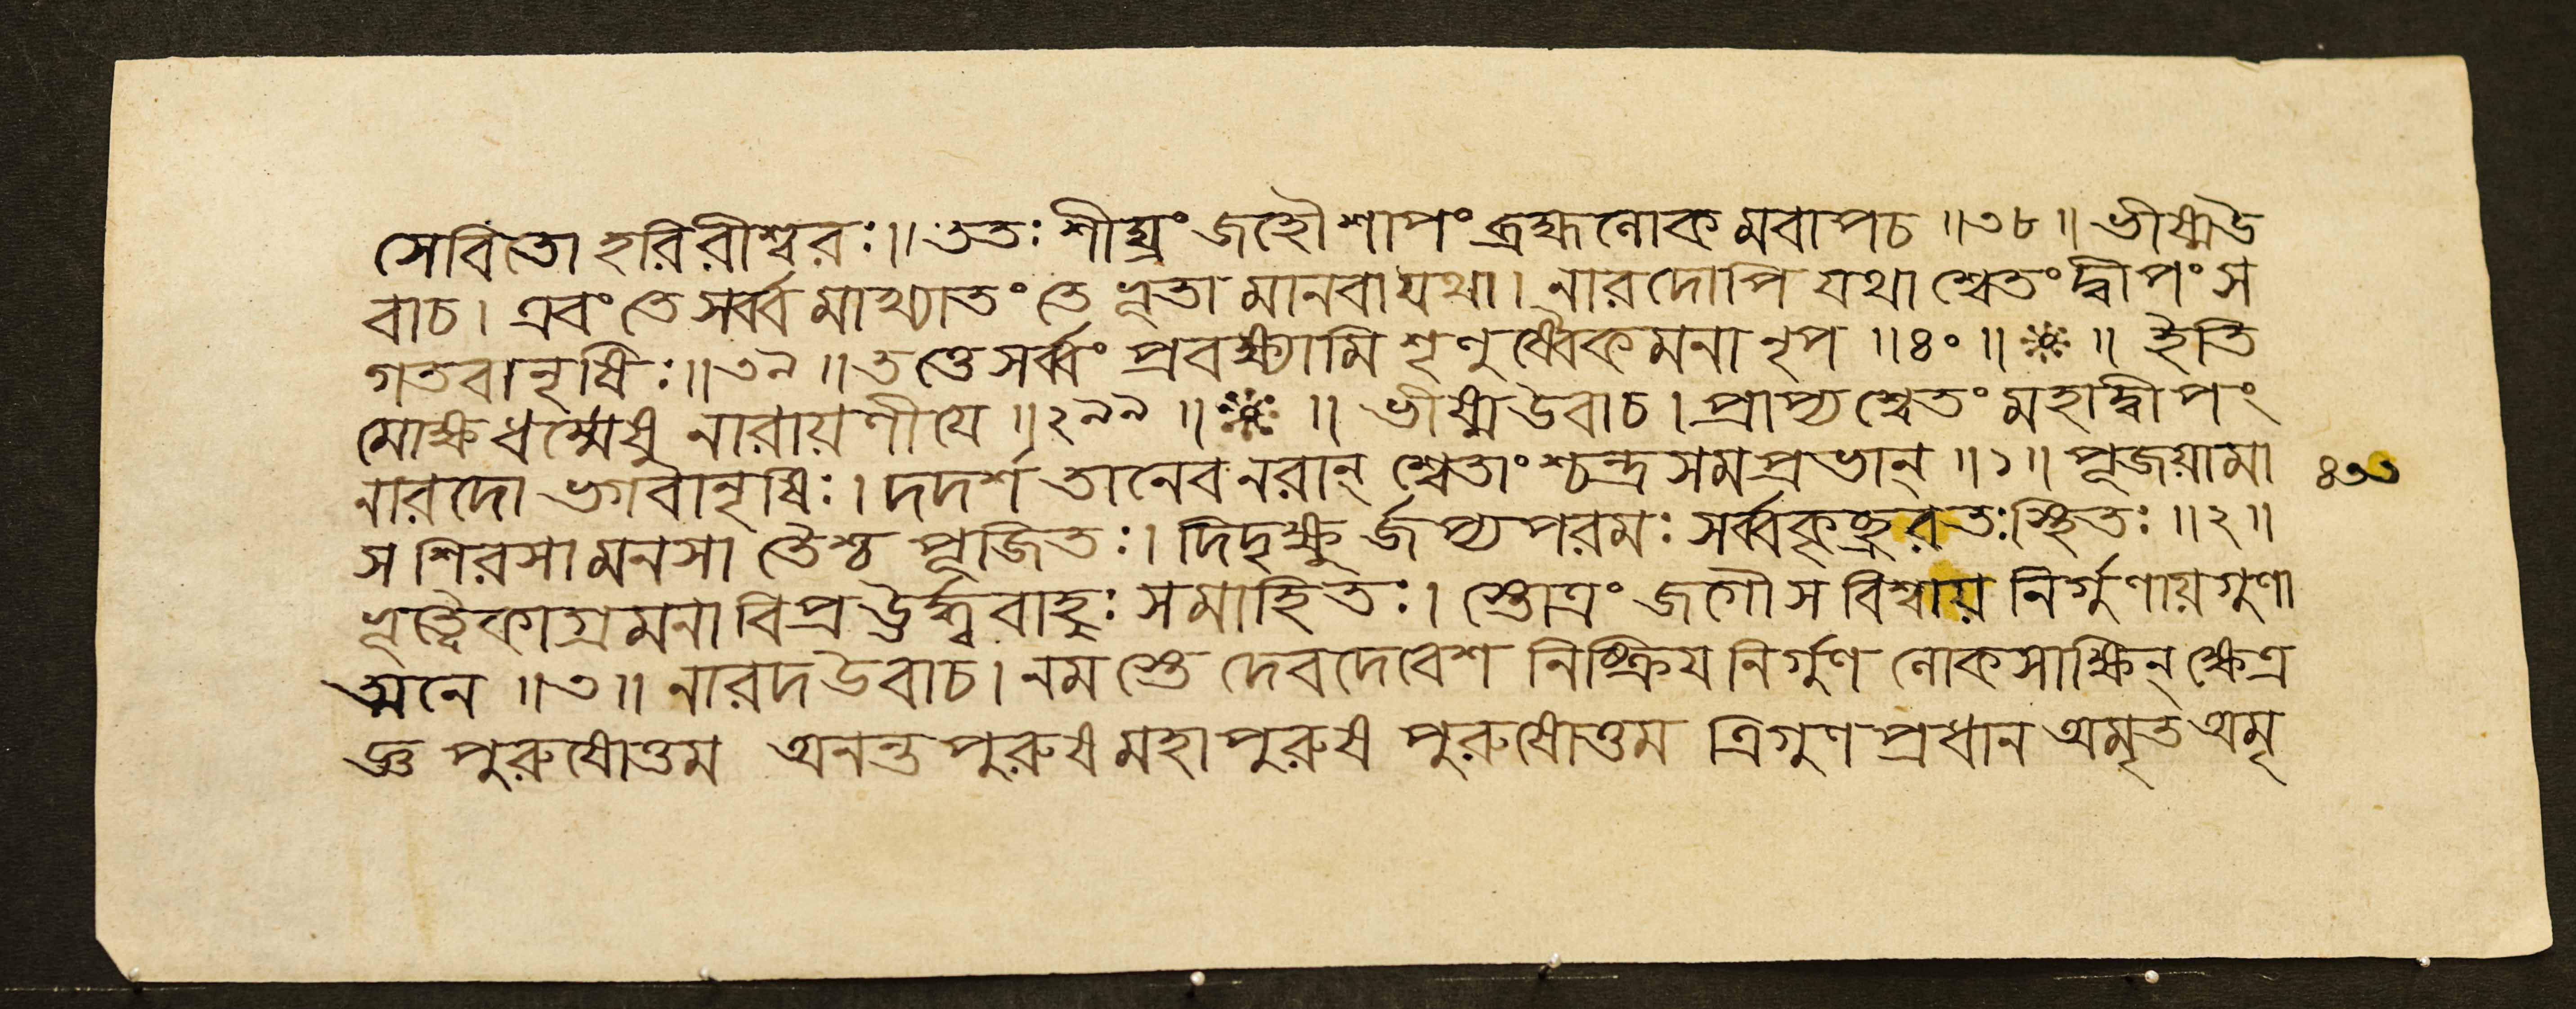 সেবিতো হরিরীশ্বরঃ॥ততঃ শীঘ্রং জহৌ শাপং ব্রহ্মলোকমবাপচ ॥৩৮॥ ভীষ্মউ
বাচ। এবং তে সর্ব্বমাখ্যাতং তে ভূতা মানবা যথা। নারদোপি যথা শ্বেতং দ্বীপং স
গতবানৃষিঃ॥৩৯॥ তত্তে সর্ব্বং প্রবক্ষ্যামি শৃণুষ্বৈকমনা নৃপ ॥৪০॥ ॥ ইতি
মোক্ষধর্ম্মেষু নারায়ণীযে ॥২৯৯॥ ॥ ভীষ্মউবাচ। প্রাপ্য শ্বেতং মহাদ্বীপং
নারদো ভগবানৃষিঃ। দদর্শ তানেব নরান্ শ্বেতাংশ্চন্দ্রসমপ্রভান্ ॥১॥ পূজয়ামা
স শিরসা মনসা তৈশ্চ পূজিতঃ। দিদৃক্ষুর্জপ্যপরমঃ সর্ব্বকৃচ্ছ্রবতঃস্থিতঃ ॥২॥
ভূত্বৈকাগ্রমনা বিপ্রঊর্দ্ধ্ববাহুঃ সমাহিতঃ। স্তোত্রং জগৌ স বিশ্বায় নির্গুণায়গুণা
ত্মনে ॥৩॥ নারদউবাচ। নমস্তে দেবদেবেশ নিষ্ক্রিয নির্গুণ লোকসাক্ষিন্ ক্ষেত্র
জ্ঞ পুরুষোত্তম অনন্ত পুরুষ মহাপুরুষ পুরুষোত্তম ত্রিগুণপ্রধান অমৃত অমৃ